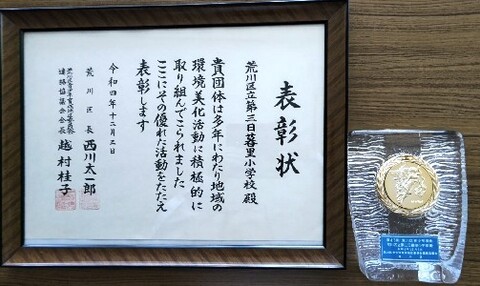 表彰状
荒川区立第三日暮里小学校殿
貴団体は多年にわたり地域の
環境美化活動に積極的に
取り組んでこられました
ここにその優れた活動をたたえ
表彰します
令和四年十二月三日
荒川区長 西川太一郎
連絡協議会会長 越村桂子